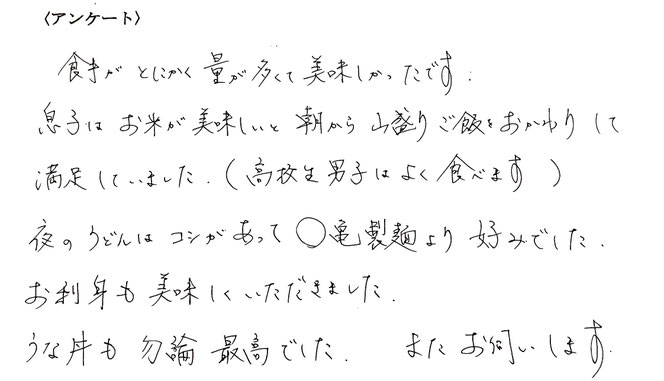 〈アンケート〉
食事がとにかく量が多くて美味しかったです.
息子はお米が美味しいと朝から山盛りご飯をおかわりして
満足していました.(高校生男子はよく食べます)
夜のうどんはコシがあって〇亀製麺より好みでした.
お刺身も美味しくいただきました.
うな丼も勿論最高でした. またお伺いします.